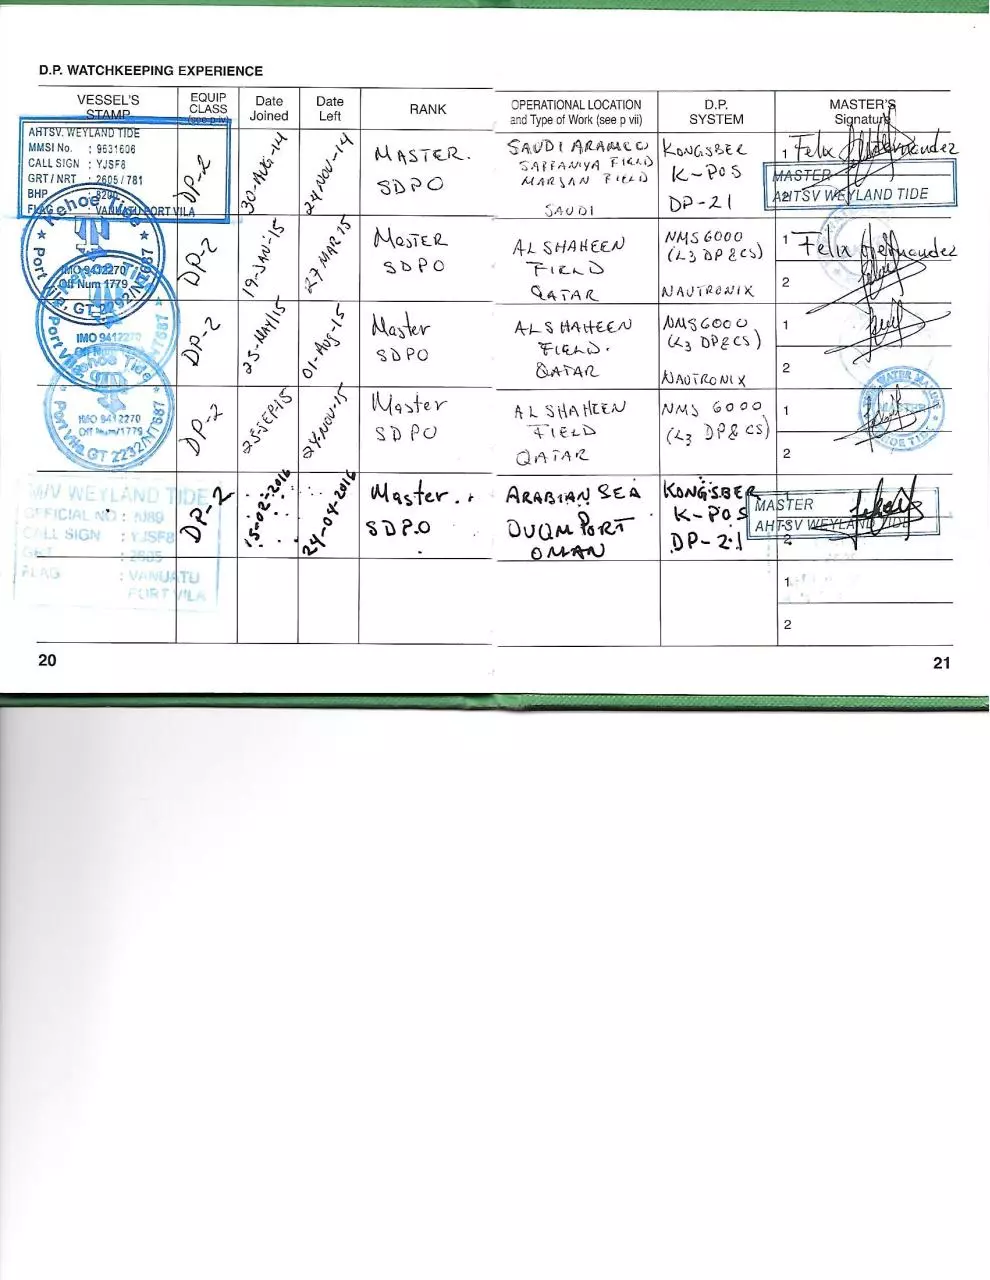 D.P. WATCHKEEPING EXPERIENCE
VESSEL'S STAMP
EQUIP CLASS (see p iv)
Date Joined
Date Left
RANK
OPERATIONAL LOCATION and Type of Work (see p vii)
D.P. SYSTEM
MASTER'S Signature
AHTSV. WEYLAND TIDE
MMSI No. : 9631606
CALL SIGN : YJSF8
GRT / NRT : 2605 / 781
BHP : 8200
FLAG : VANUATU PORT VILA
DP-2
30-AUG-14
24 NOV-14
MASTER.
SDPO
SAUDI ARAMCO
SAFFANIYA FIELD
MARJAN FIELD
SAUDI
KONGSBER
K-POS
DP-21
1 Felix Hernandez
MASTER
2
AHTSV WEYLAND TIDE
Kehoe Tide
Port Vila, GT 2292/NT687
IMO 9412270
Off Num 1779
DP-2
19-JAN-15
27 MAR 15
MASTER
SDPO
AL SHAHEEN
FIELD
QATAR
NMS6000
(L3 DP & CS)
NAUTRONIX
1 Felix Hernandez
2
IMO 9412270
DP-2
25-MAY/15
01-Aug-15
Master
SDPO
AL SHAHEEN
FIELD.
QATAR
NMS6000
(L3 DP&CS)
NAUTRONIX
1
2
Kehoe Tide
Port Vila GT 2232/NT687
IMO 9412270
Off Num/1779
DP-2
25-SEP-15
24-NOV-15
Master
SDPO
AL SHAHEEN
FIELD
QATAR
NMS 6000
(L3 DP& CS)
1
2
M/V WEYLAND TIDE
OFFICIAL NO :
CALL SIGN : YJSF8
GRT : 2605
FLAG : VANUATU
PORT VILA
DP-2
15-02-2016
24-04-2016
Master.
SDPO
ARABIAN SEA
DUQM PORT
OMAN
KONGSBER
K-POS
DP-21
MASTER
AHTSV WEYLAND TIDE
2
1
2
20
21